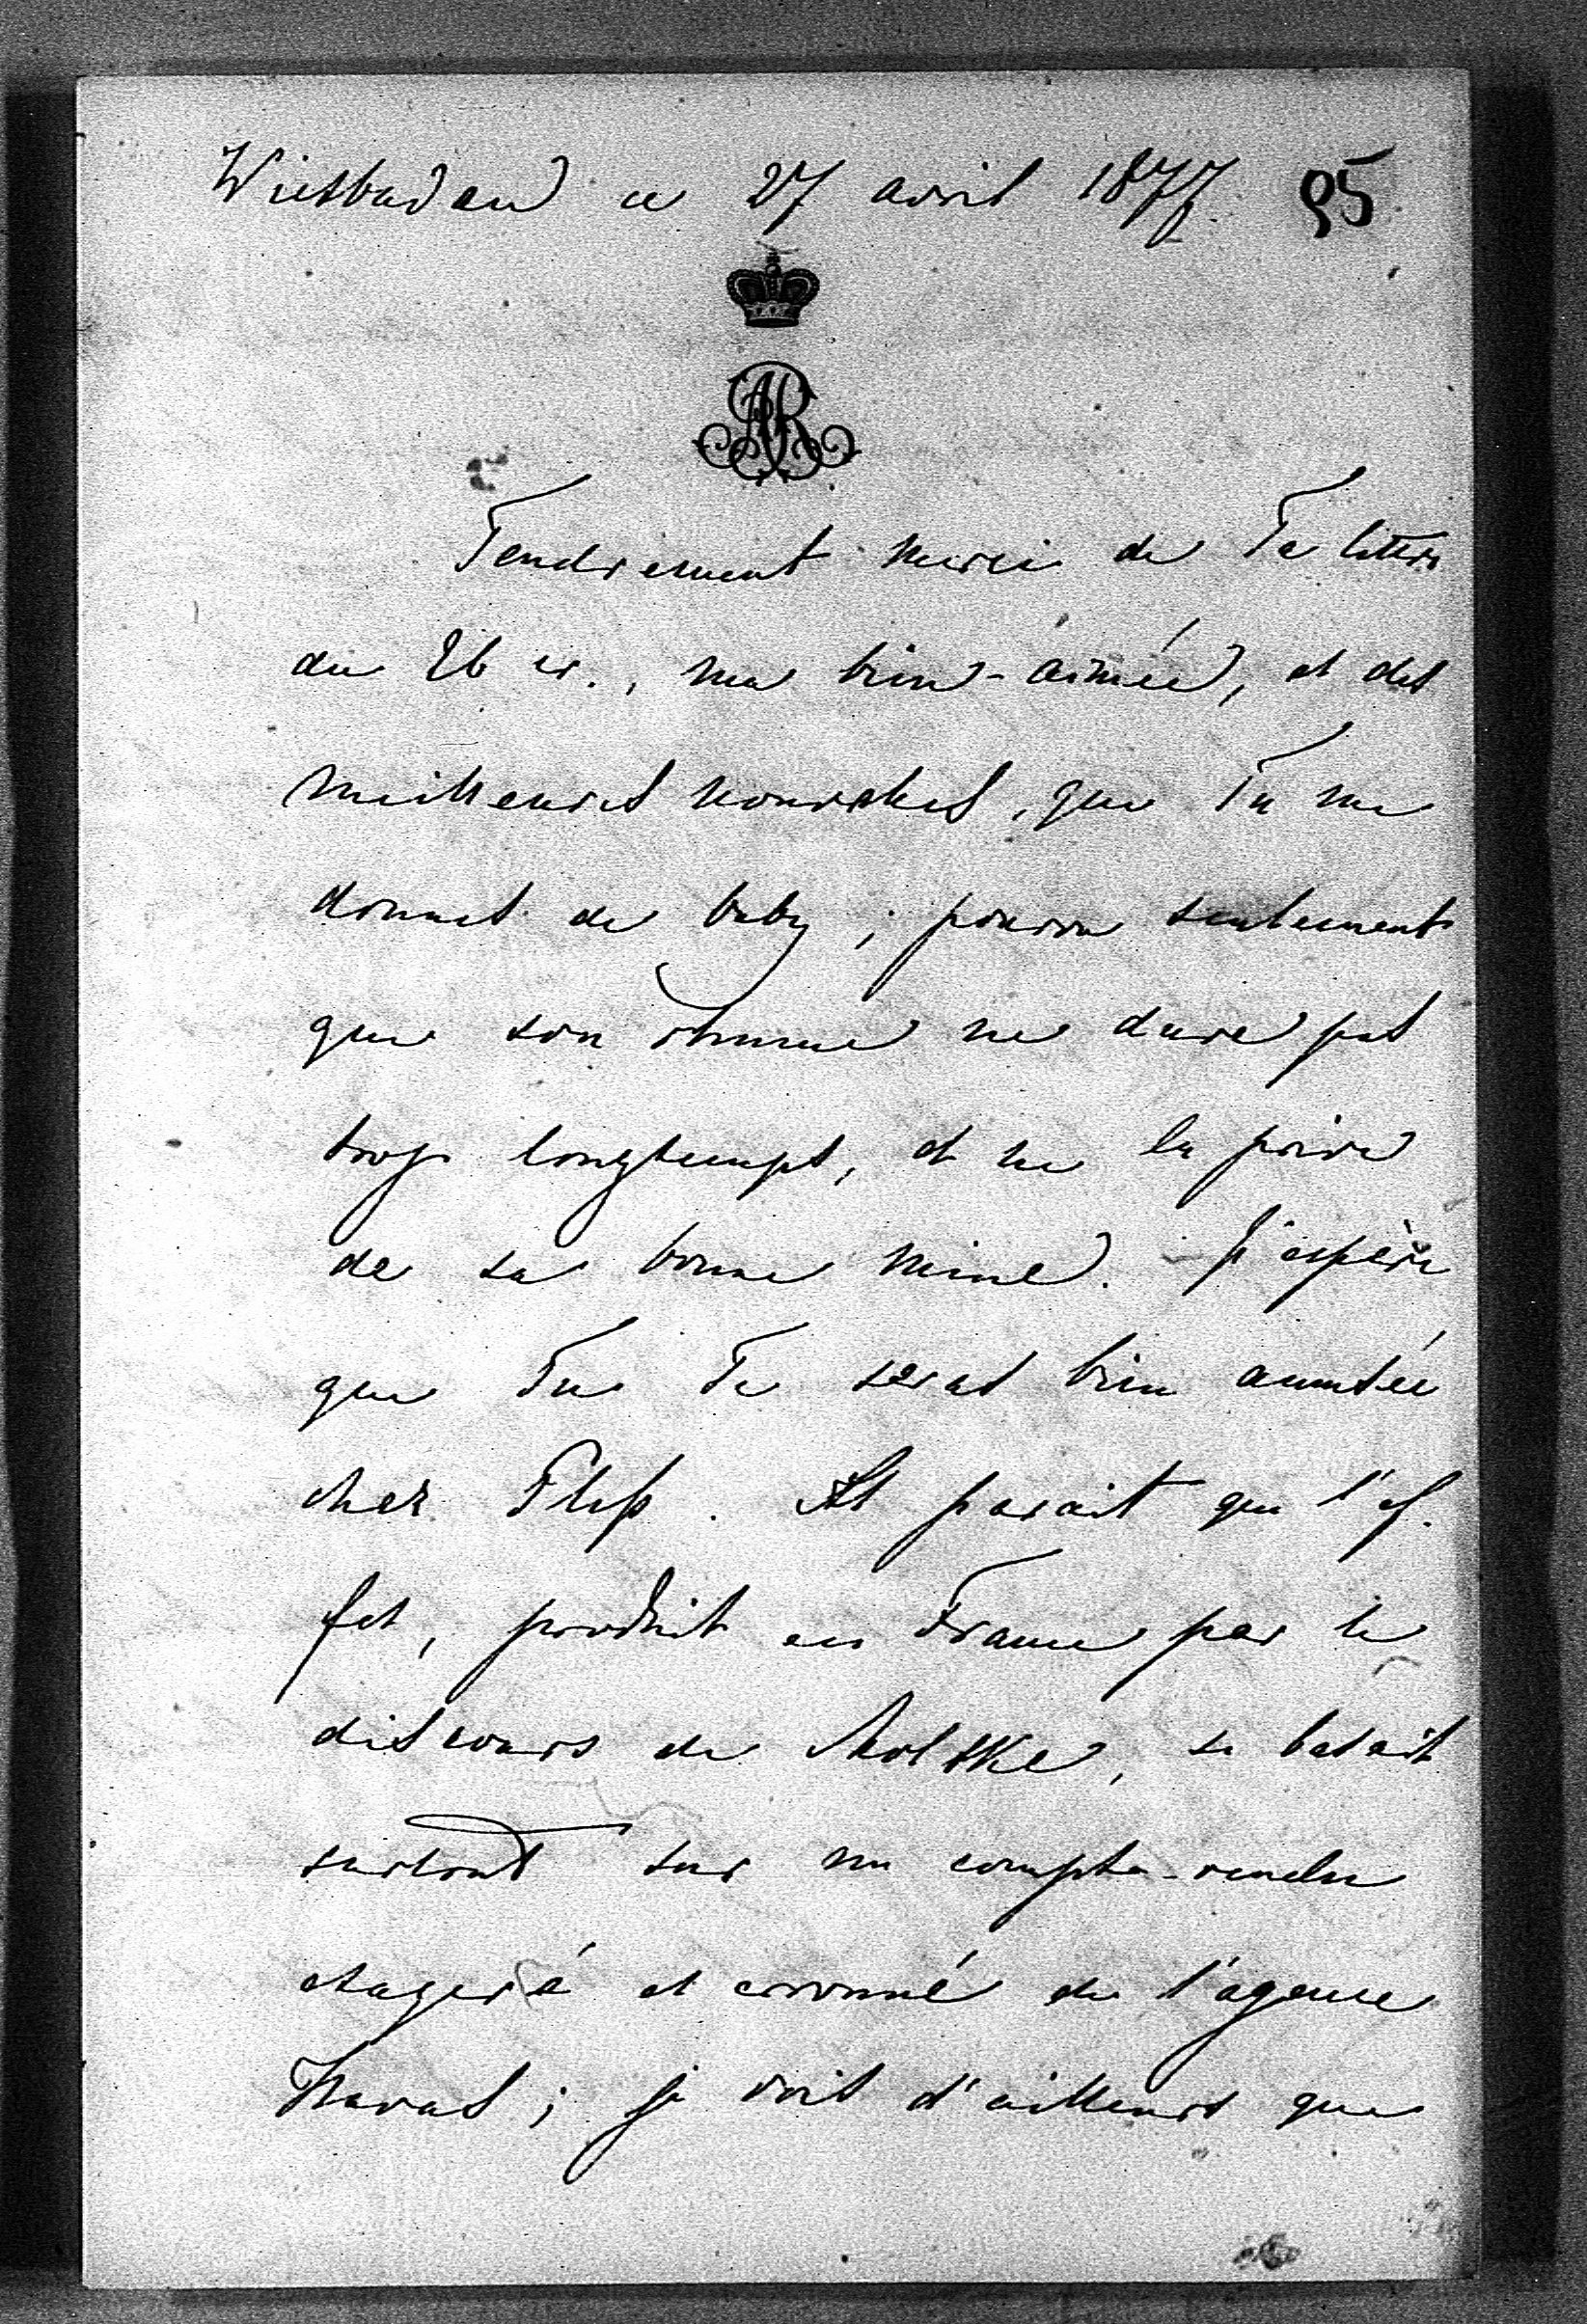 Wiesbaden ce 27 avril 1877. 95
AR
Tendrement merci de Ta lettre
du 26 cr., ma bien-aimée, et des
meilleures nouvelles, que Tu me
donnes de baby; pourvu seulement
que son rhume ne dure pas
trop longtemps, et ne la prive
de sa bonne mine. J'espère
que Tu Te seras bien amusée
chez Pless. Il parait que l'ef-
fet, produit en France par le
discours de Moltke, se basait
surtout sur un compte-rendu
exagéré et erronné de l'agence
Havas; je vois d'ailleurs que